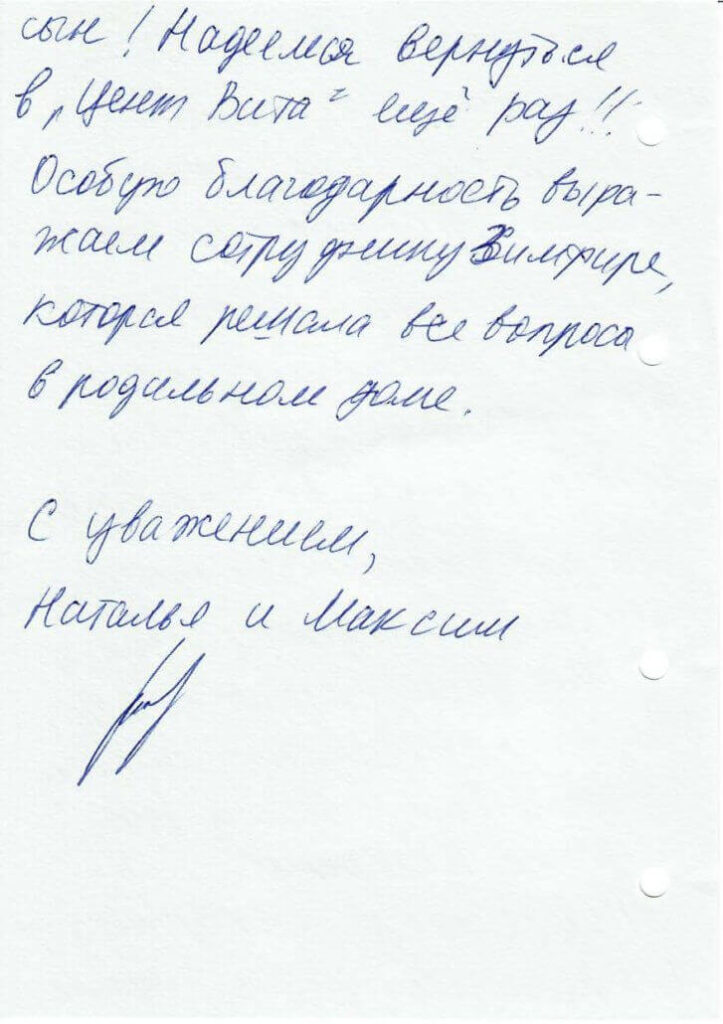 сын! Надеемся вернуться
в „Цент Вита“ ещё раз!!!
Особую благодарность выра-
жаем сотруднику Зимфире,
которая решала все вопроса
в родильном доме.
С уважением,
Наталья и Максим